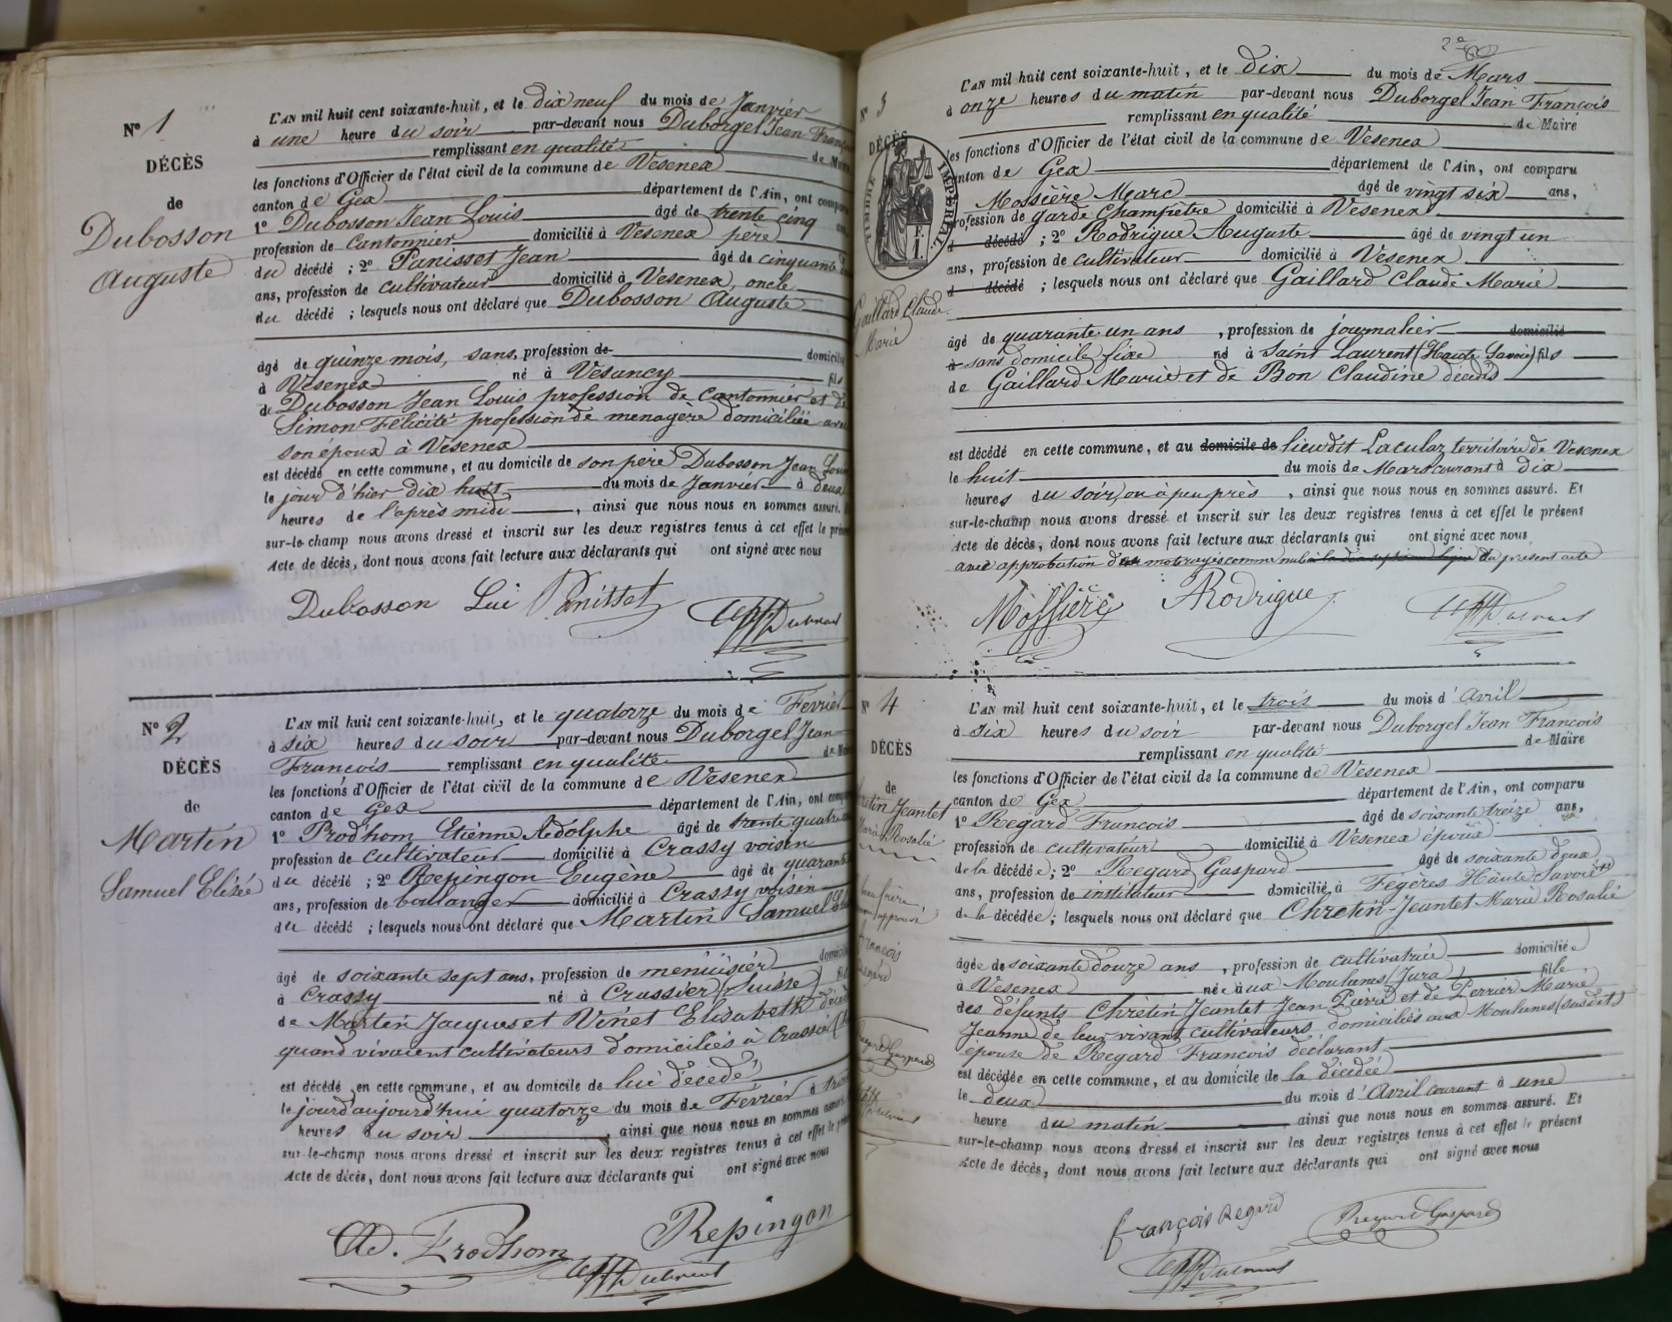 N° 1
DÉCÈS
de
Dubosson
Auguste
L'AN mil huit cent soixante-huit, et le dix neuf du mois de Janvier
à une heure du soir par-devant nous Duborgel Jean
remplissant en qualité de
les fonctions d'Officier de l'état civil de la commune de Vesenex
canton de Gex département de l'Ain, ont
1° Dubosson Jean Louis âgé de trente cinq
profession de Cantonnier domicilié à Vesenex père
du décédé ; 2° Panisset Jean âgé de cinquante
ans, profession de cultivateur domicilié à Vesenex, oncle
du décédé ; lesquels nous ont déclaré que Dubosson Auguste
âgé de quinze mois, sans profession de
à Vesenex né à Vesancy fils
de Dubosson Jean Louis profession de Cantonnier et de
Simon Félicité profession de menagère domiciliée
son époux à Vesenex
est décédé en cette commune, et au domicile de son père Dubosson Jean
le jour d'hier dix huit du mois de Janvier à deux
heures de l'après midi, ainsi que nous nous en sommes assuré.
sur-le-champ nous avons dressé et inscrit sur les deux registres tenus à cet effet le
Acte de décès, dont nous avons fait lecture aux déclarants qui ont signé avec nous
Dubosson Lui Panisset
N° 2
DÉCÈS
de
Martin
Samuel Elisée
L'AN mil huit cent soixante-huit, et le quatorze du mois de Fevrier
à six heures du soir par-devant nous Duborgel Jean
François remplissant en qualité de
les fonctions d'Officier de l'état civil de la commune de Vesenex
canton de Gex département de l'Ain, ont
1° Prodhom Etienne Adolphe âgé de trente quatre
profession de cultivateur domicilié à Crassy voisin
du décédé ; 2° Repingon Eugène âgé de quarante
ans, profession de boulanger domicilié à Crassy voisin
du décédé ; lesquels nous ont déclaré que Martin Samuel
âgé de soixante sept ans, profession de menuisier
à Crassy né à Crassier (Suisse)
de Martin Jacques et Vinet Elisabeth
quand vivaient cultivateurs domiciliés à Crassier
est décédé en cette commune, et au domicile de lui décédé
le jourd'aujourd'hui quatorze du mois de Février à
heures du soir, ainsi que nous nous en sommes
sur-le-champ nous avons dressé et inscrit sur les deux registres tenus à cet effet le
Acte de décès, dont nous avons fait lecture aux déclarants qui ont signé avec nous
AD. Prodhom Repingon
N° 3
DÉCÈS
TIMBRE IMPÉRIAL
Gaillard Claude
Marie
L'AN mil huit cent soixante-huit, et le dix du mois de Mars
à onze heures du matin par-devant nous Duborgel Jean François
remplissant en qualité de Maire
les fonctions d'Officier de l'état civil de la commune de Vesenex
canton de Gex département de l'Ain, ont comparu
Mossière Marc âgé de vingt six ans,
profession de garde champêtre domicilié à Vesenex
d décédé ; 2° Rodrigue Auguste âgé de vingt un
ans, profession de cultivateur domicilié à Vesenex
d décédé ; lesquels nous ont déclaré que Gaillard Claude Marie
âgé de quarante un ans, profession de journalier domicilié
à sans domicile fixe né à Saint Laurent (Haute Savoie) fils
de Gaillard Marie et de Bon Claudine décédés
est décédé en cette commune, et au domicile de lieudit Laculaz territoire de Vesenex
le huit du mois de Mars courant à dix
heures du soir, ou à peu près, ainsi que nous nous en sommes assuré. Et
sur-le-champ nous avons dressé et inscrit sur les deux registres tenus à cet effet le présent
Acte de décès, dont nous avons fait lecture aux déclarants qui ont signé avec nous
avec approbation mots rayés comme nuls du present acte
Mossière ARodrigue
N° 4
DÉCÈS
de
Chretin Jeantet
Marie Rosalie
L'AN mil huit cent soixante-huit, et le trois du mois d'avril
à six heures du soir par-devant nous Duborgel Jean François
remplissant en qualité de Maire
les fonctions d'Officier de l'état civil de la commune de Vesenex
canton de Gex département de l'Ain, ont comparu
1° Regard François âgé de soixante treize ans,
profession de cultivateur domicilié à Vesenex époux
de la décédée ; 2° Regard Gaspard âgé de soixante deux
ans, profession de instituteur domicilié à Fégères Haute Savoie
de la décédée ; lesquels nous ont déclaré que Chretin-Jeantet Marie Rosalie
beau frère
approuvé
François
Regard
Regard Gaspard
âgée de soixante douze ans, profession de cultivatrice domiciliée
à Vesenex née aux Moulunes (Jura) fille
des défunts Chretin Jeantet Jean Pierre et de Perrier Marie
Jeanne de leur vivant cultivateurs domiciliés aux Moulunes (susdit)
épouse de Regard François déclarant
est décédée en cette commune, et au domicile de la décédée
le deux du mois d'Avril courant à une
heure du matin ainsi que nous nous en sommes assuré. Et
sur-le-champ nous avons dressé et inscrit sur les deux registres tenus à cet effet le présent
Acte de décès, dont nous avons fait lecture aux déclarants qui ont signé avec nous
françois Regard Regard Gaspard